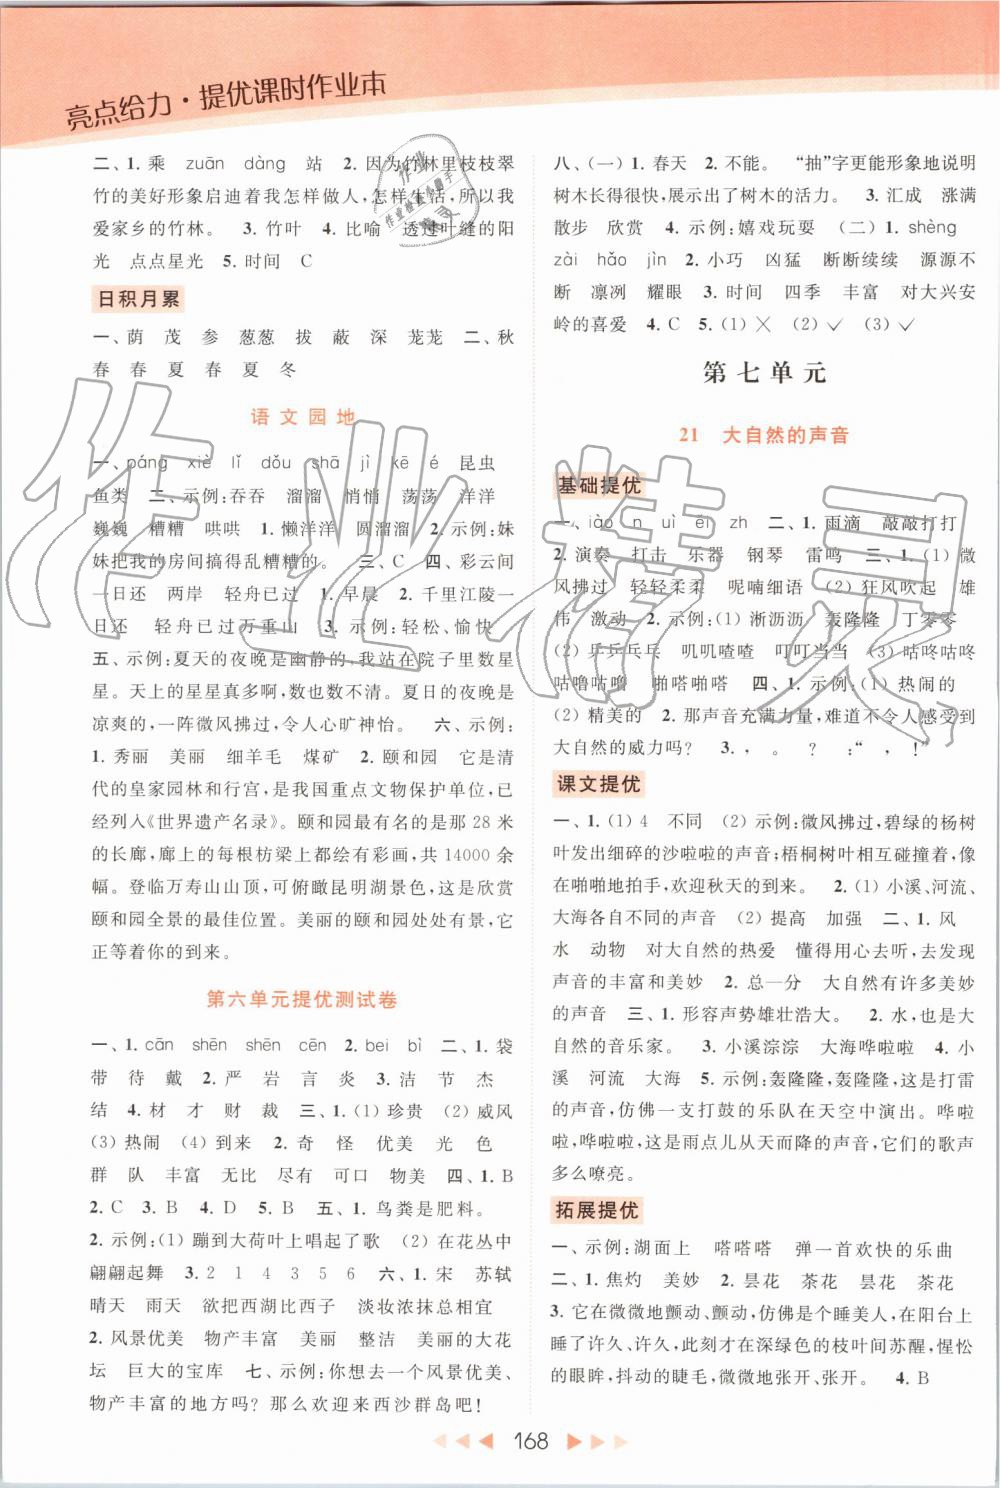 亮点给力·提优课时作业本
二、1. 乘 zuān dàng 站 2. 因为竹林里枝枝翠
竹的美好形象启迪着我怎样做人,怎样生活,所以我
爱家乡的竹林。 3. 竹叶 4. 比喻 透过叶缝的阳
光 点点星光 5. 时间 C
日积月累
一、荫 茂 参 葱葱 拔 蔽 深 茏茏 二、秋
春 春 夏 春 夏 冬
语文园地
一、páng xiè lǐ dǒu shā jì kē é 昆虫
鱼类 二、示例:吞吞 溜溜 悄悄 荡荡 洋洋
巍巍 糟糟 哄哄 1. 懒洋洋 圆溜溜 2. 示例:妹
妹把我的房间搞得乱糟糟的。 三、C 四、彩云间
一日还 两岸 轻舟已过 1. 早晨 2. 千里江陵一
日还 轻舟已过万重山 3. 示例:轻松、愉快
五、示例:夏天的夜晚是幽静的,我站在院子里数星
星。天上的星星真多啊,数也数不清。夏日的夜晚是
凉爽的,一阵微风拂过,令人心旷神怡。 六、示例:
1. 秀丽 美丽 细羊毛 煤矿 2. 颐和园 它是清
代的皇家园林和行宫,是我国重点文物保护单位,已
经列入《世界遗产名录》。颐和园最有名的是那 28 米
的长廊,廊上的每根枋梁上都绘有彩画,共 14000 余
幅。登临万寿山山顶,可俯瞰昆明湖景色,这是欣赏
颐和园全景的最佳位置。美丽的颐和园处处有景,它
正等着你的到来。
第六单元提优测试卷
一、1. cān shēn shēn cēn 2. bei bì 二、1. 袋
带 待 戴 2. 严 岩 言 炎 3. 洁 节 杰
结 4. 材 才 财 裁 三、1. (1) 珍贵 (2) 威风
(3) 热闹 (4) 到来 2. 奇 怪 优美 光 色
群 队 丰富 无比 尽有 可口 物美 四、1. B
2. C 3. B 4. D 5. B 五、1. 鸟粪是肥料。
2. 示例:(1) 蹦到大荷叶上唱起了歌 (2) 在花丛中
翩翩起舞 3. 2 1 4 3 5 6 六、1. 宋 苏轼
晴天 雨天 欲把西湖比西子 淡妆浓抹总相宜
2. 风景优美 物产丰富 美丽 整洁 美丽的大花
坛 巨大的宝库 七、示例:你想去一个风景优美、
物产丰富的地方吗?那么欢迎来西沙群岛吧!
八、(一) 1. 春天 2. 不能。 “抽”字更能形象地说明
树木长得很快,展示出了树木的活力。 3. 汇成 涨满
散步 欣赏 4. 示例:嬉戏玩耍 (二) 1. shèng
zài hǎo jìn 2. 小巧 凶猛 断断续续 源源不
断 凛冽 耀眼 3. 时间 四季 丰富 对大兴安
岭的喜爱 4. C 5. (1) ╳ (2) ✓ (3) ✓
第七单元
21 大自然的声音
基础提优
一、iào n uì éi zh 二、1. 雨滴 敲敲打打
2. 演奏 打击 乐器 钢琴 雷鸣 三、1. (1) 微
风拂过 轻轻柔柔 呢喃细语 (2) 狂风吹起 雄
伟 激动 2. 示例:(1) 淅沥沥 轰隆隆 丁零零
(2) 乒乒乓乓 叽叽喳喳 叮叮当当 (3) 咕咚咕咚
咕噜咕噜 啪嗒啪嗒 四、1. 示例:(1) 热闹的
(2) 精美的 2. 那声音充满力量,难道不令人感受到
大自然的威力吗? 3. , 。 ? :“ , !”
课文提优
一、1. (1) 4 不同 (2) 示例:微风拂过,碧绿的杨树
叶发出细碎的沙啦啦的声音;梧桐树叶相互碰撞着,像
在啪啪地拍手,欢迎秋天的到来。 2. (1) 小溪、河流、
大海各自不同的声音 (2) 提高 加强 二、1. 风
水 动物 对大自然的热爱 懂得用心去听,去发现
声音的丰富和美妙 2. 总—分 大自然有许多美妙
的声音 三、1. 形容声势雄壮浩大。 2. 水,也是大
自然的音乐家。 3. 小溪淙淙 大海哗啦啦 4. 小
溪 河流 大海 5. 示例:轰隆隆,轰隆隆,这是打雷
的声音,仿佛一支打鼓的乐队在天空中演出。哗啦
啦,哗啦啦,这是雨点儿从天而降的声音,它们的歌声
多么嘹亮。
拓展提优
一、示例:湖面上 嗒嗒嗒 弹一首欢快的乐曲
二、1. 焦灼 美妙 2. 昙花 茶花 昙花 茶花
3. 它在微微地颤动、颤动,仿佛是个睡美人,在阳台上
睡了许久、许久,此刻才在深绿色的枝叶间苏醒,惺忪
的眼眸,抖动的睫毛,微微地张开、张开。 4. B
168
作业精灵